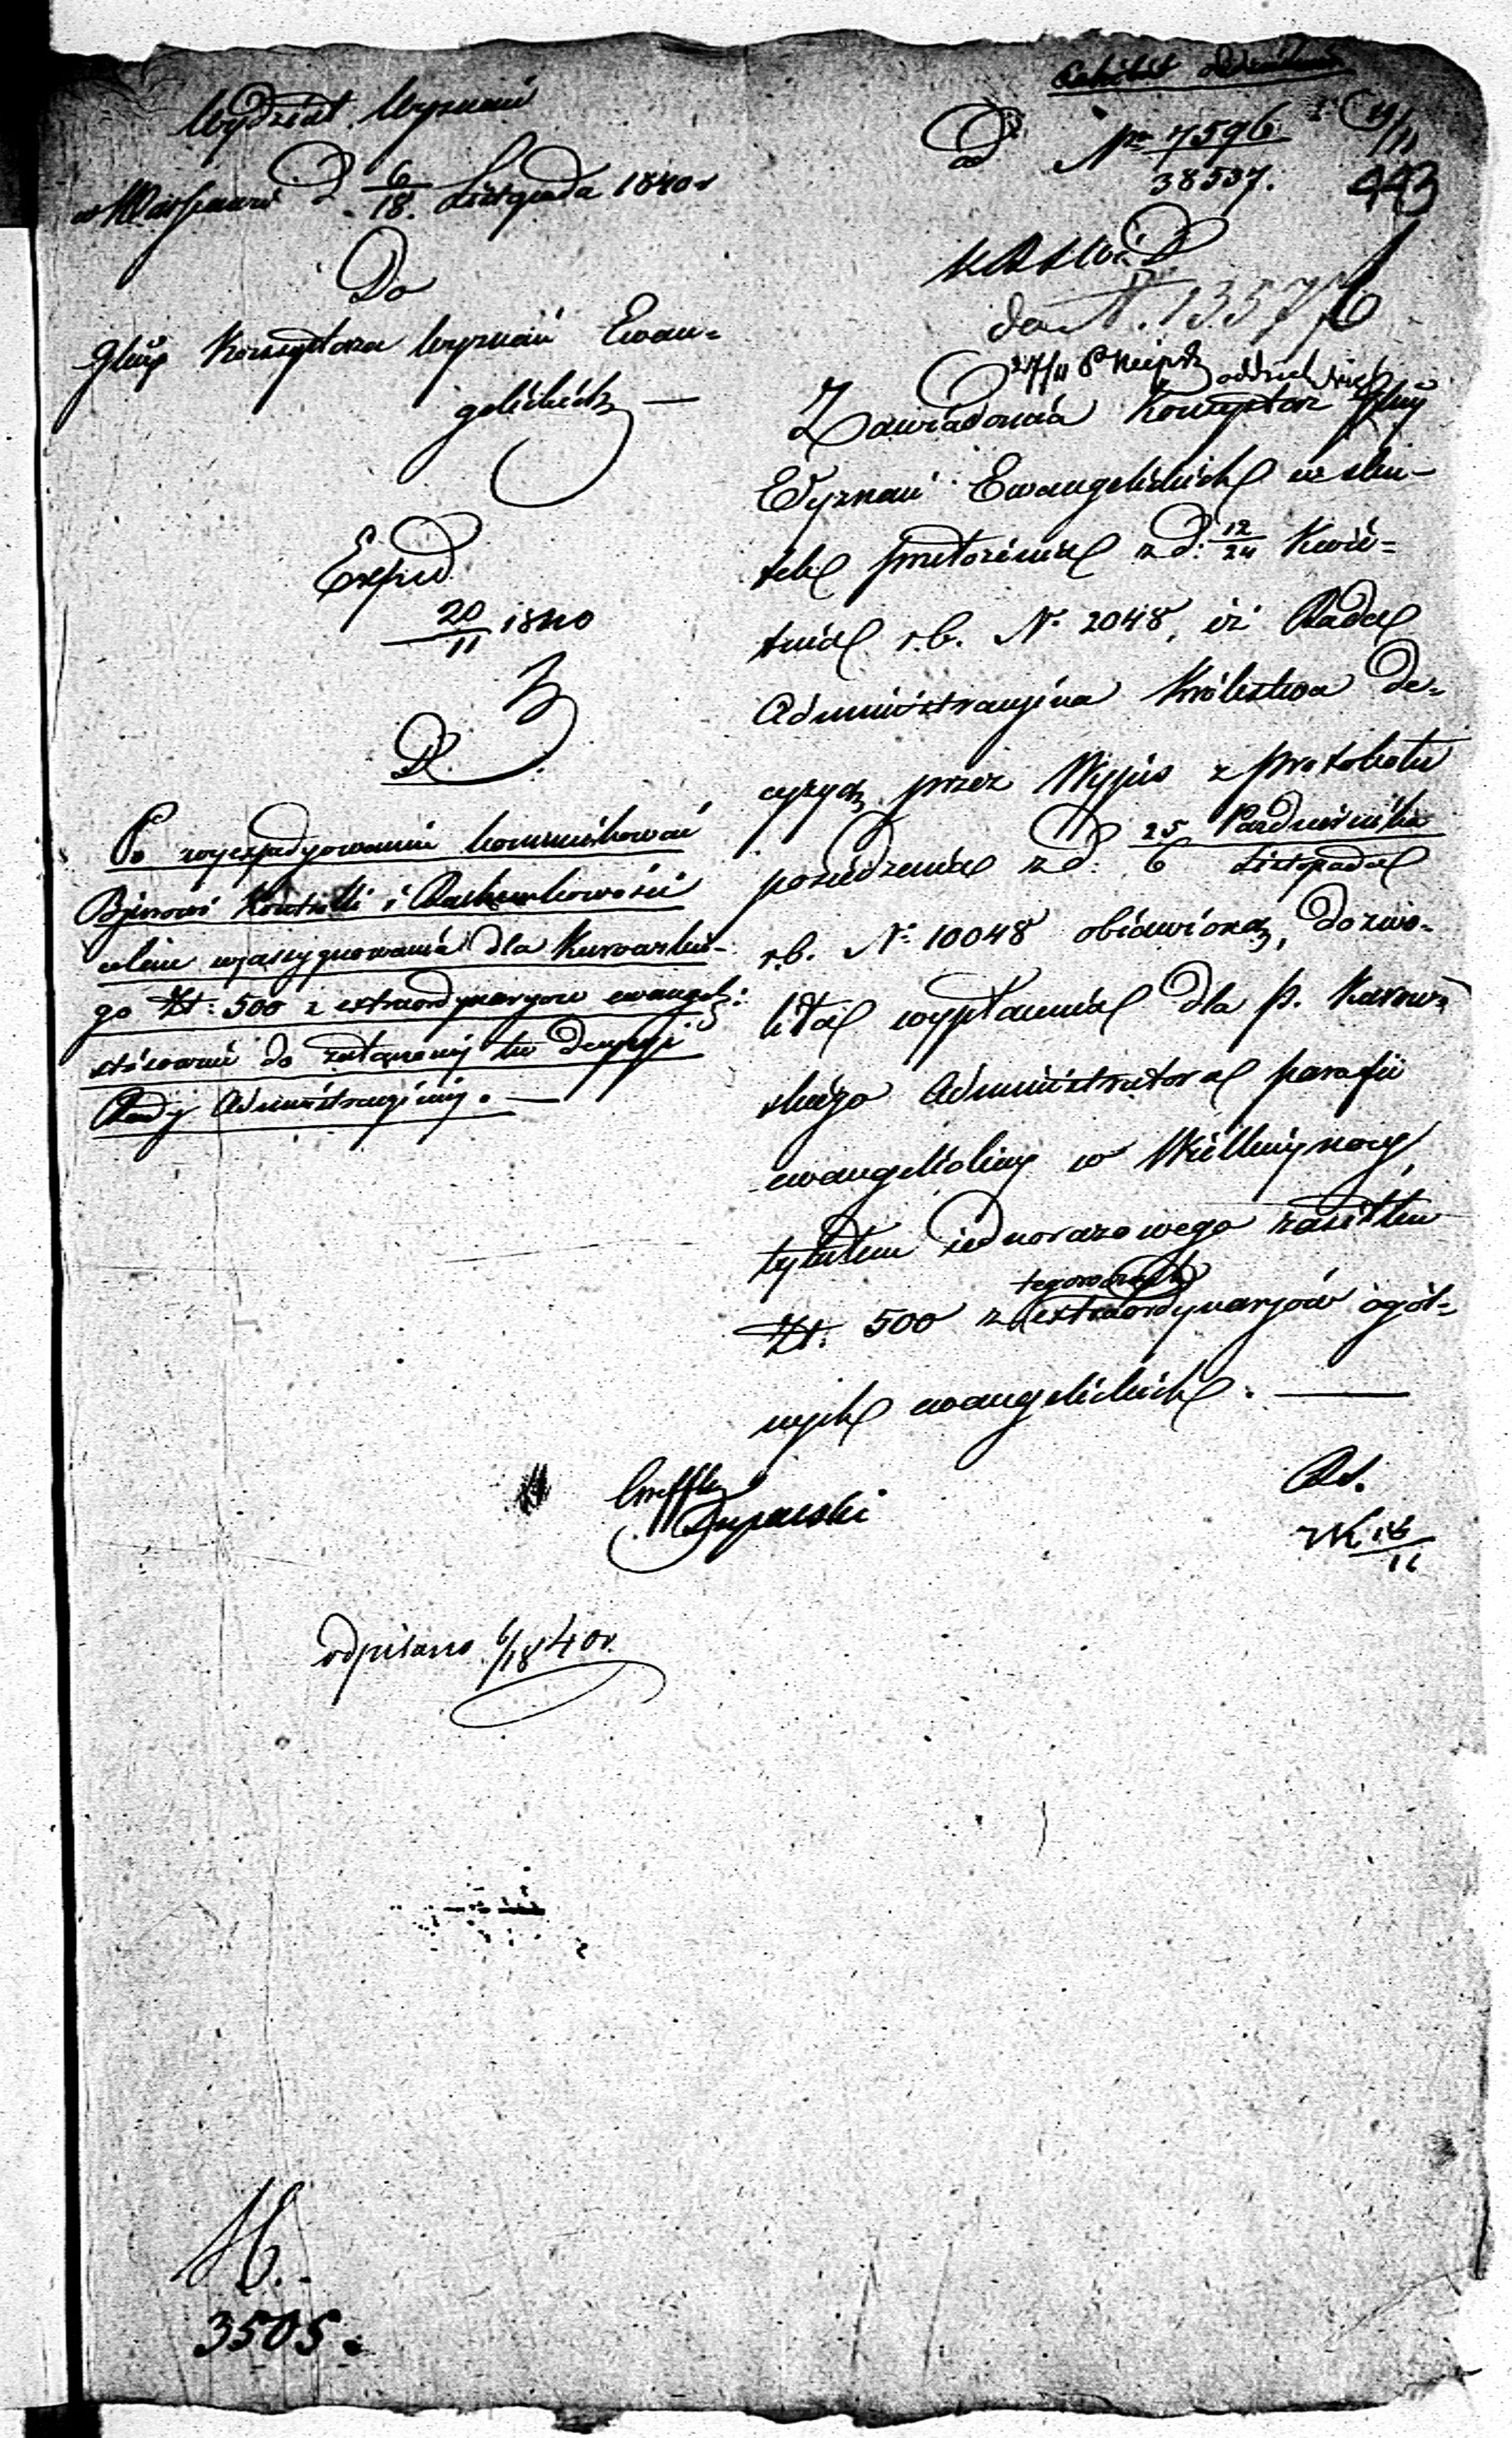 Wydział Wyznań
w Warszawie D. 6/18. Listopada 1840 r
Do
Głuy Konsystorza Wyznań Ewan=
gelickich
Exped
20/11 1840
Po wyexpedyowaniu kommunikować
Bjurowi Kontrolli i Rachunkowości
celem wyassygnowania dla Kurowskie-
go Zł: 500 z extraordynaryow ewangel:
stósownie do załączonej tu Decyzji
Rady Administracyjnéj.
ad Nro 7596
38537.
443
do N. 13577
Zawiadomia Konsystorz Głny
Wyznań Ewangelickich w sku-
tek przełożenia z d: 12/24 Kwie=
tnia r.b. N° 2048, iż Rada
Administracyjna Królestwa de=
cyzyą przez Wypis z protokołu
posiedzenia z d. 25 Października
6 Listopada
r.b. N° 10048 obiawioną, dozwo-
liła wypłacenia dla p. Kurow=
skiego Administratora parafii
ewangelickiey w
tytułem iednorazowego zasiłku
tegorocznych
Zł. 500 z extraordynaryów ogól=
nych ewangelickich.
odpisano 6/18 40 r.
3505.